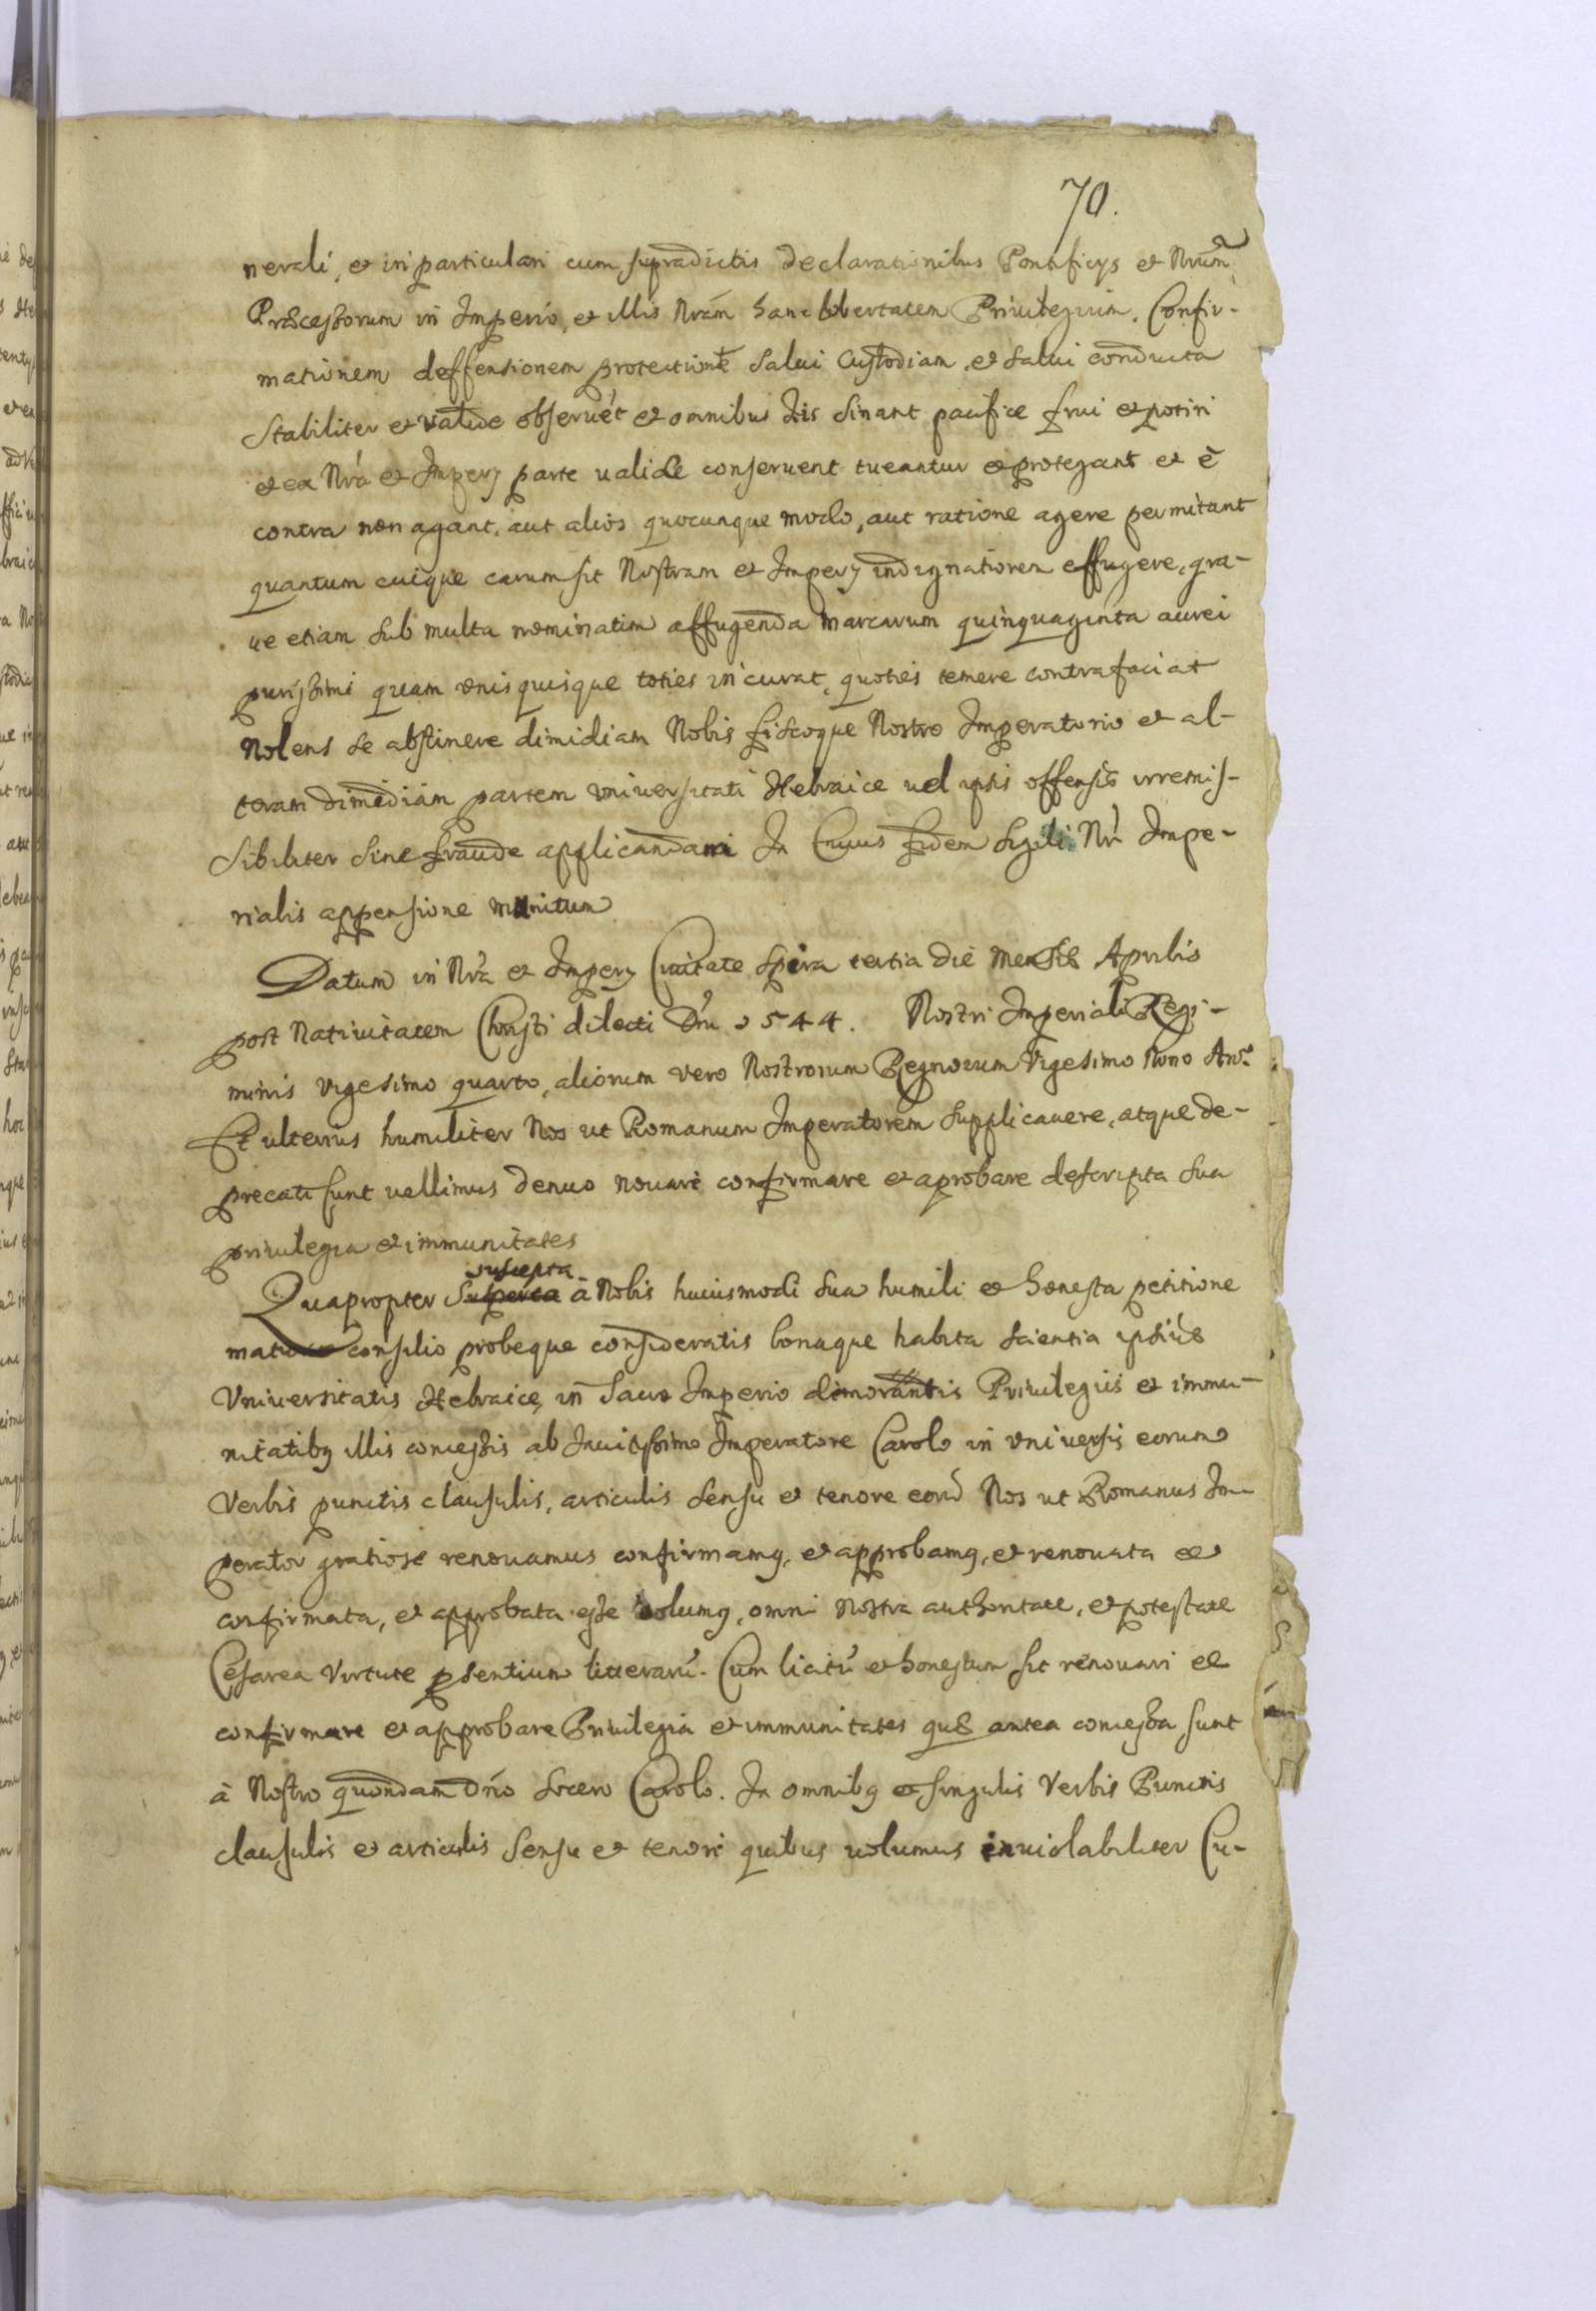 70.
nerali, et in particulari cum supradictis declarationibus Pontificys et Nrūm
Prædecessorum in Imperio, et illis Nrām hanc libertatem Priuilegium. Confir-
mationem deffensionem protectionē salui Custodiam, et salui conducta
stabiliter et valide obseruēt et omnibus his sinant pacifice frui et potiri
et ex Nrā et Impery parte ualide conseruent tueantur et protegant et ē
contra non agant, aut alios quocunque modo, aut ratione agere permitant
quantum cuique carum sit Nostram et Impery indignationem effugere, gra-
ue etiam sub multa nominatim affugenda marcarum quinquaginta aurei
purissimi quam vnis quisque toties incurat, quoties temere contrafaciat
Nolens se abstinere dimidiam Nobis fiscoque Nostro Imperatorio et al-
teram dimediam partem vniuersitati Hebraice uel ipsis offensis irremis-
sibiliter sine fraude applicandam In Cuius fidem sigili Nri Impe-
rialis appensione munitum
Datum in Nrā et Impery Ciuitate Spira tertia die mensis Aprilis
post Natiuitatem Christi dilecti Dni 1544. Nostri Imperiali Regi-
minis vigesimo quarto, aliorum vero Nostrorum Regnorum Vigesimo Nono Anº
Et ulterius humiliter Nos ut Romanum Imperatorem supplicauere, atque de-
precati sunt uellimus denuo nouare confirmare et aprobare descripta sua
priuilegia et immunitates
suscepta
Quapropter à Nobis huiusmodi sua humili et honesta petitione
consilio probeque consideratis bonaque habita scientia ipsius
Vniuersitatis Hebraice, in Sacro Imperio dimorantis Priuilegiis et immu-
nitatibus illis concessis ab Inuictissimo Imperatore Carolo in vniuersis eorum
Verbis punctis clausulis, articulis sensu et tenore eorū Nos ut Romanus Im-
perator gratiose renouamus confirmamus, et approbamus, et renouata et
confirmata, et approbata esse uolumus, omni Nostra authoritate, et potestate
Cesarea Virtute psentium litterarū. Cum licitū et honestum sit renouari et
confirmare et approbare Priuilegia et immunitates quæ antea concessa sunt
à Nostro quondam Dnō Socero Carolo. In omnibus et singulis Verbis Punctis
clausulis et articulis sensu et tenore quibus uolumus inuiolabiliter Cu-